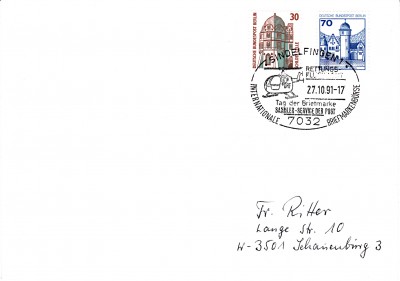 DEUTSCHE BUNDESPOST BERLIN
30
70
DEUTSCHE BUNDESPOST BERLIN
SINDELFINGEN 1
RETTUNGS-
27.10.91-17
Tag der Briefmarke
SAMMLER-SERVICE DER POST
INTERNATIONALE BRIEFMARKENBÖRSE
7032
Fr. Ritter
Lange Str. 10
W-3501 Schauenburg 3